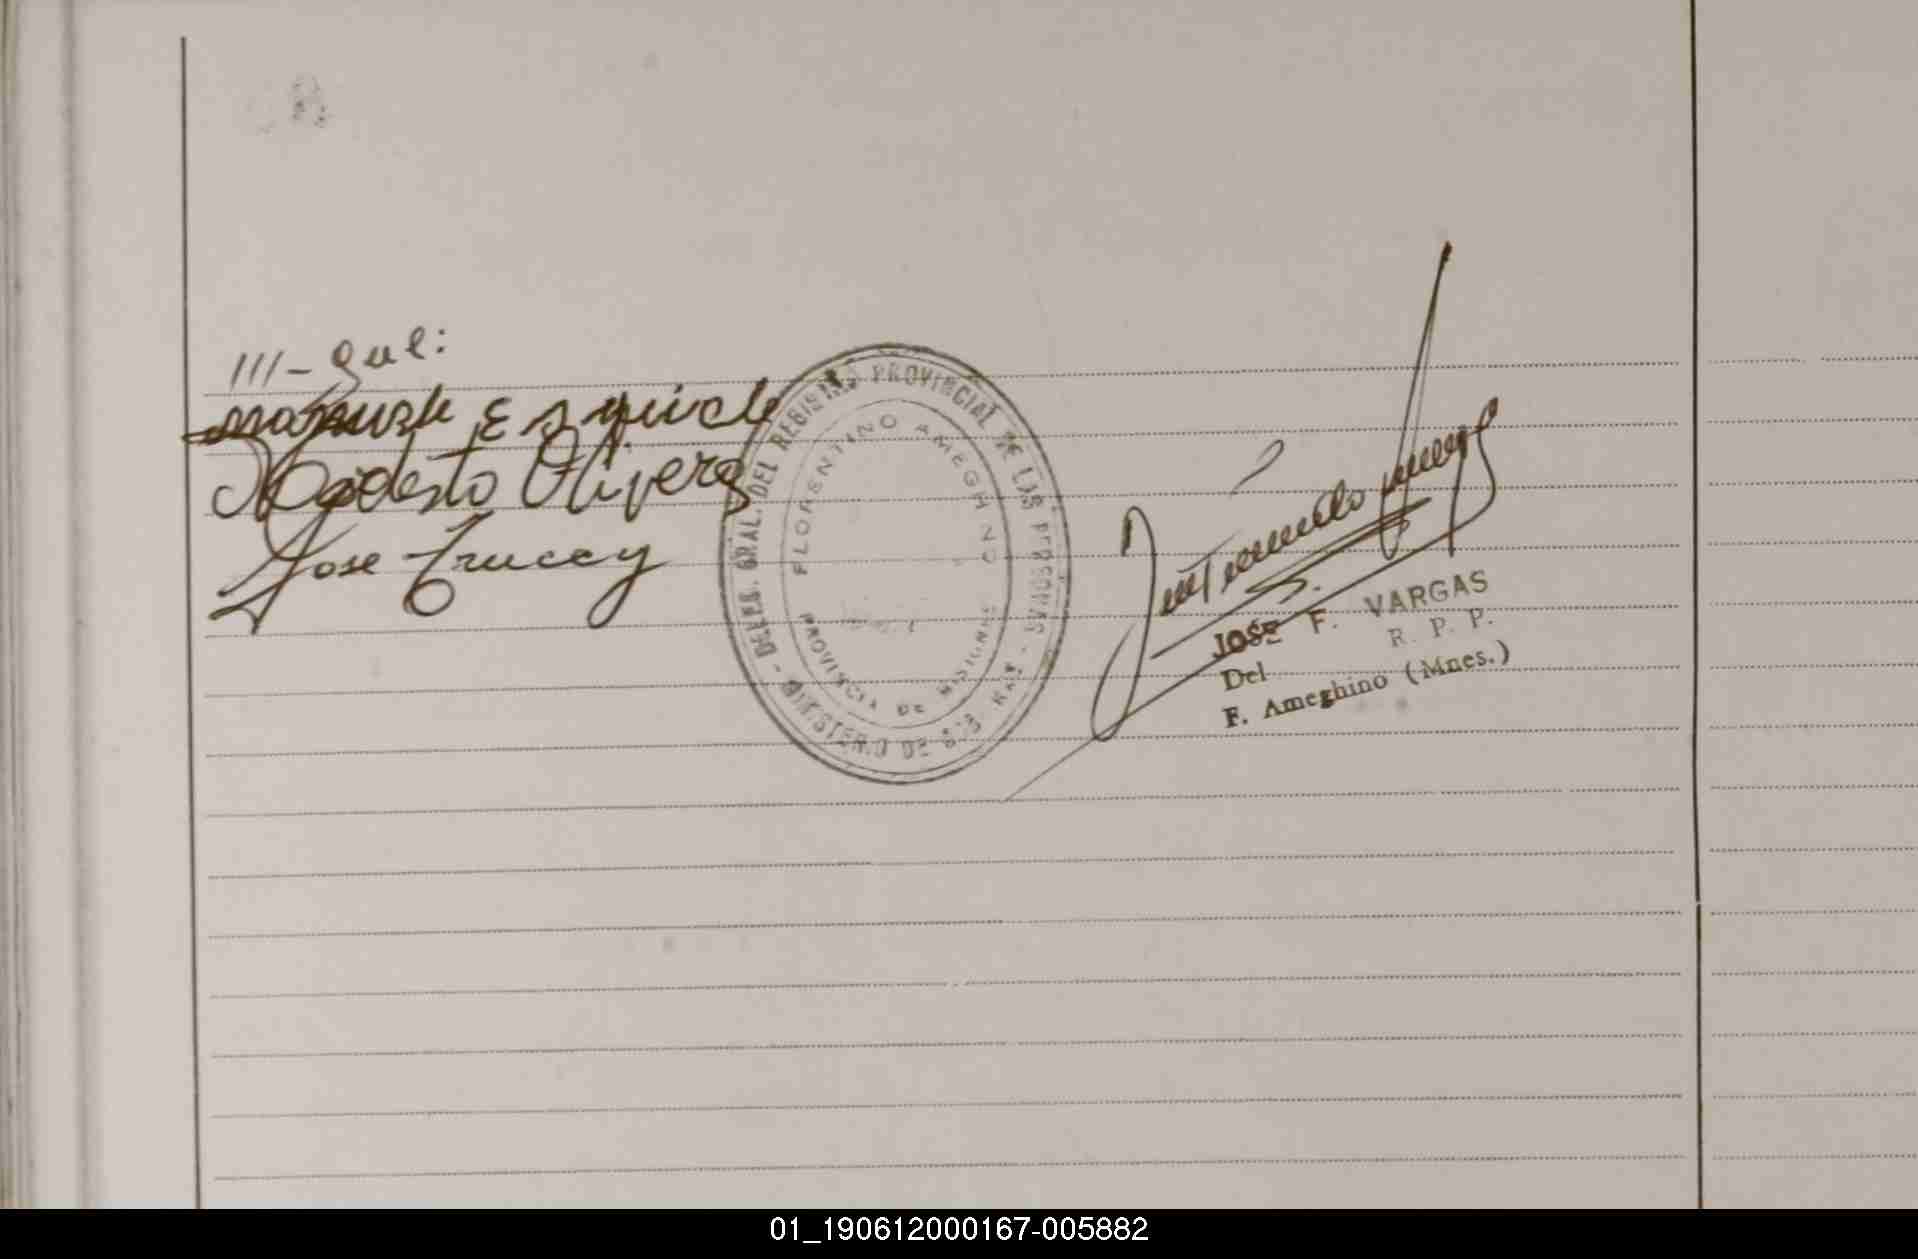 III - que:
Esquivel
Modesto Olivera
Jose Truccy
DEPTO. GRAL. DEL REGISTRO PROVINCIAL DE LAS PERSONAS
FLORENTINO AMEGHINO
PROVINCIA DE MISIONES
MINISTERIO DE
JOSE F. VARGAS
Del R. P. P.
F. Ameghino (Mnes.)
01_190612000167-005882